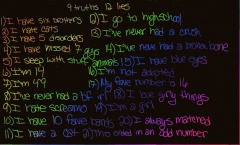 9 truths 12 lies
1) I have six brothers 12) I go to highschool
2) I hate cats 13) I've never had a crush
3) I have 5 disorders
4) I have kissed 7 guys 14) I've never had a broken bone
5) I sleep with stuffed animals 15) I have blue eyes
6) I'm 14 16) I'm not adopted
7) I'm 4'9 17) My fave number is 16
8) I've never had a bf 18) I love girly things
9) I hate screamo 19) I'm a girl
10) I have 10 fave bands 20) I always matched
11) I have a cat 21) This ended in an odd number